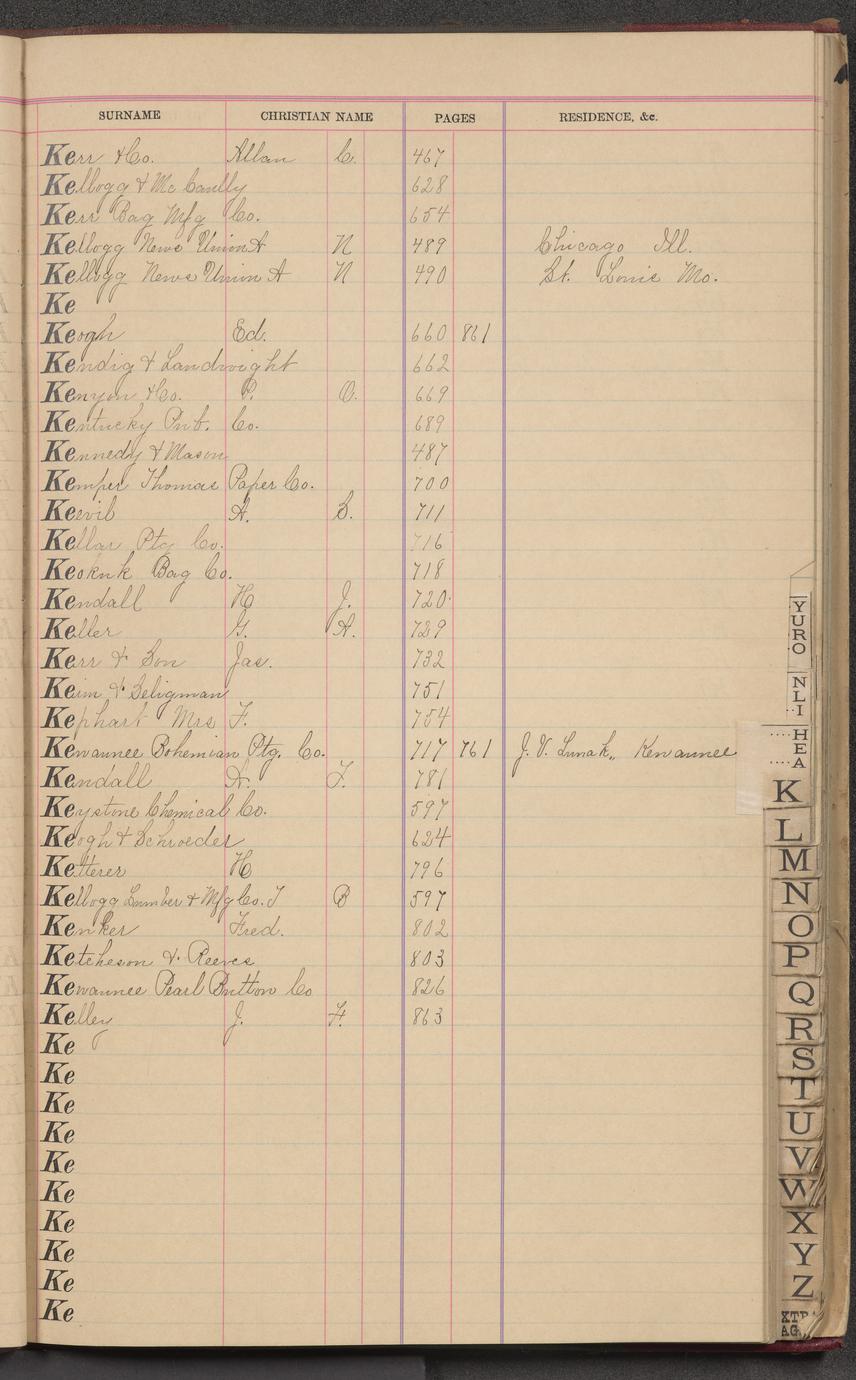 SURNAME CHRISTIAN NAME PAGES RESIDENCE, &c.
Kerr & Co. Allan C. 467
Kellogg & McCaully 628
Kerr Bag Mfg Co. 654
Kellogg News Union A N 489 Chicago Ill.
Kellogg News Union A N 490 St. Louis Mo.
Ke
Keogh Ed. 660 861
Kendig & Landwright 662
Kenyon & Co. P. O. 669
Kentucky Pub. Co. 689
Kennedy & Mason 487
Kemper Thomas Paper Co. 700
Keevil A. S. 711
Kellar Ptg Co. 716
Keokuk Bag Co. 718
Kendall H J. 720
Keller G. A. 729
Kerr & Son Jas. 732
Keim & Seligman 751
Kephart Mrs F. 754
Kewaunee Bohemian Ptg. Co. 717 761 J. V. Kewaunee
Kendall F. 781
Keystone Chemical Co. 597
Keogh & Schroeder 624
Ketterer H 796
Kellogg Lumber & Mfg Co. J B 597
Kenker Fred. 802
Ketcheson & Reeves 803
Kewaunee Pearl Button Co 826
Kelley J. F. 863
Ke
Ke
Ke
Ke
Ke
Ke
Ke
Ke
Ke
Ke
YURO
NLI
HEA
K
L
M
N
O
P
Q
R
S
T
U
V
W
X
Y
Z